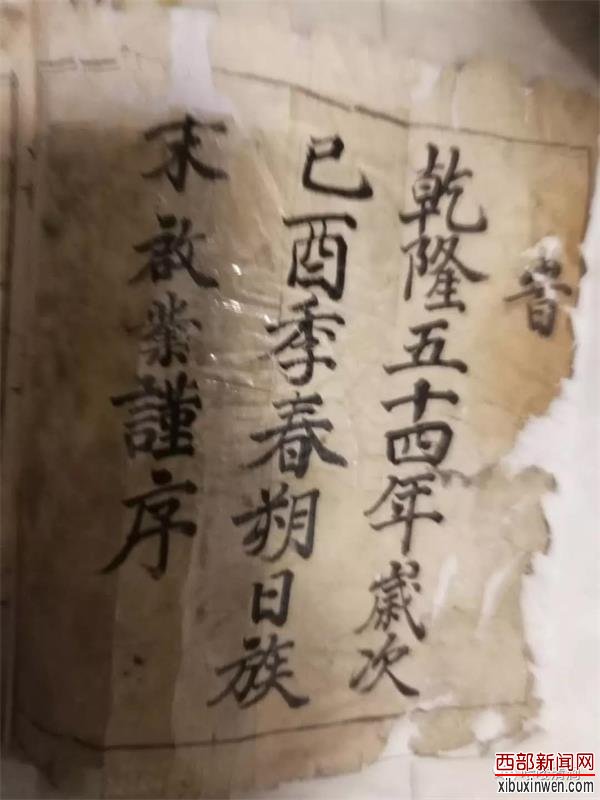 嵜
乾隆五十四年歲次
己酉季春朔日族
末啟業謹序
西部新闻网
xibuxinwen.com